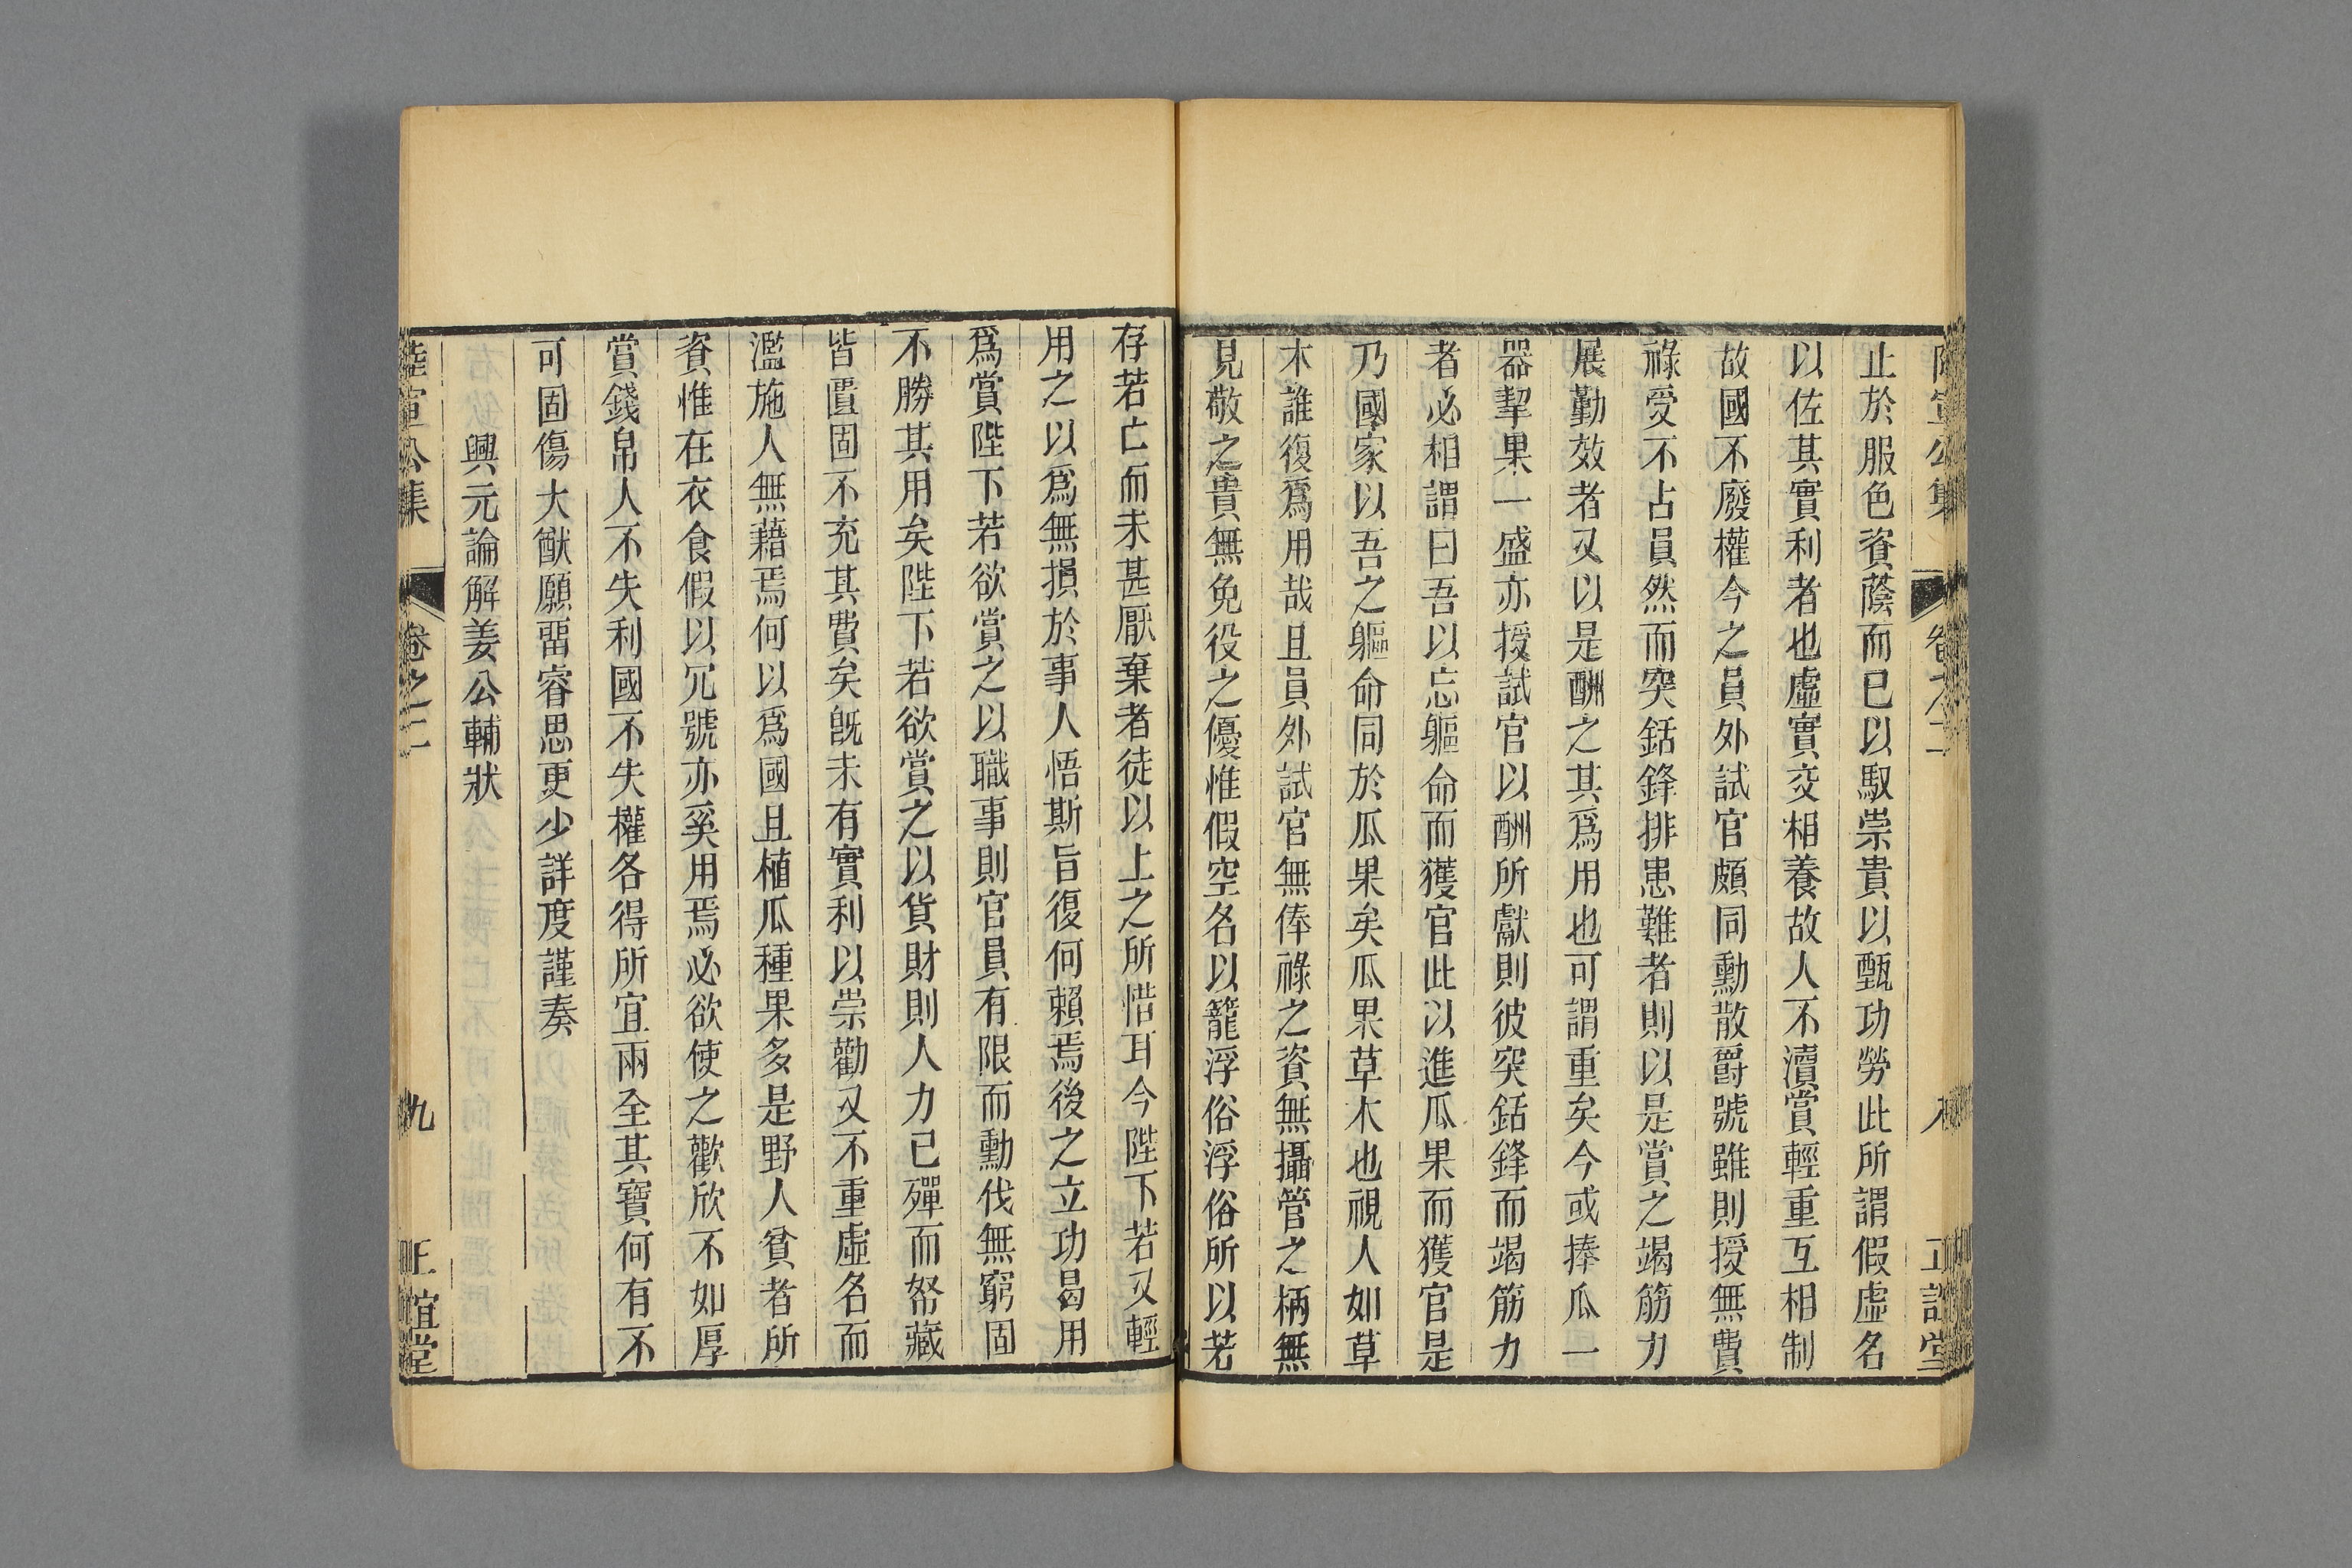 止於服色資蔭而已以馭崇貴以甄功勞此所謂假虛名
以佐其實利者也虛實交相養故人不瀆賞輕重互相制
故國不廢權今之員外試官頗同勳散爵號雖則授無費
祿受不占員然而突銛鋒排患難者則以是賞之竭筋力
展勤效者又以是酬之其爲用也可謂重矣今或捧瓜一
器挈果一盛亦授試官以酬所獻則彼突銛鋒而竭筋力
者必相謂曰吾以忘軀命而獲官此以進瓜果而獲官是
乃國家以吾之軀命同於瓜果矣瓜果草木也視人如草
木誰復爲用哉且員外試官無俸祿之資無攝管之柄無
見敬之貴無免役之優惟假空名以籠浮俗浮俗所以若
存若亡而未甚厭棄者徒以上之所惜耳今陛下若又輕
用之以爲無損於事人悟斯旨復何賴焉後之立功曷用
爲賞陛下若欲賞之以職事則官員有限而勳伐無窮固
不勝其用矣陛下若欲賞之以貨財則人力已殫而帑藏
皆匱固不充其費矣旣未有實利以崇勸又不重虛名而
濫施人無藉焉何以爲國且植瓜種果多是野人貧者所
資惟在衣食假以冗號亦奚用焉必欲使之歡欣不如厚
賞錢帛人不失利國不失權各得所宜兩全其寶何有不
可固傷大猷願畱睿思更少詳度謹奏
興元論解姜公輔狀
陸宣公集 卷之二 九 正誼堂